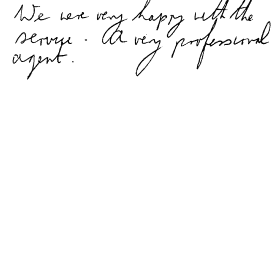 We were very happy with the
service. A very professional
agent.